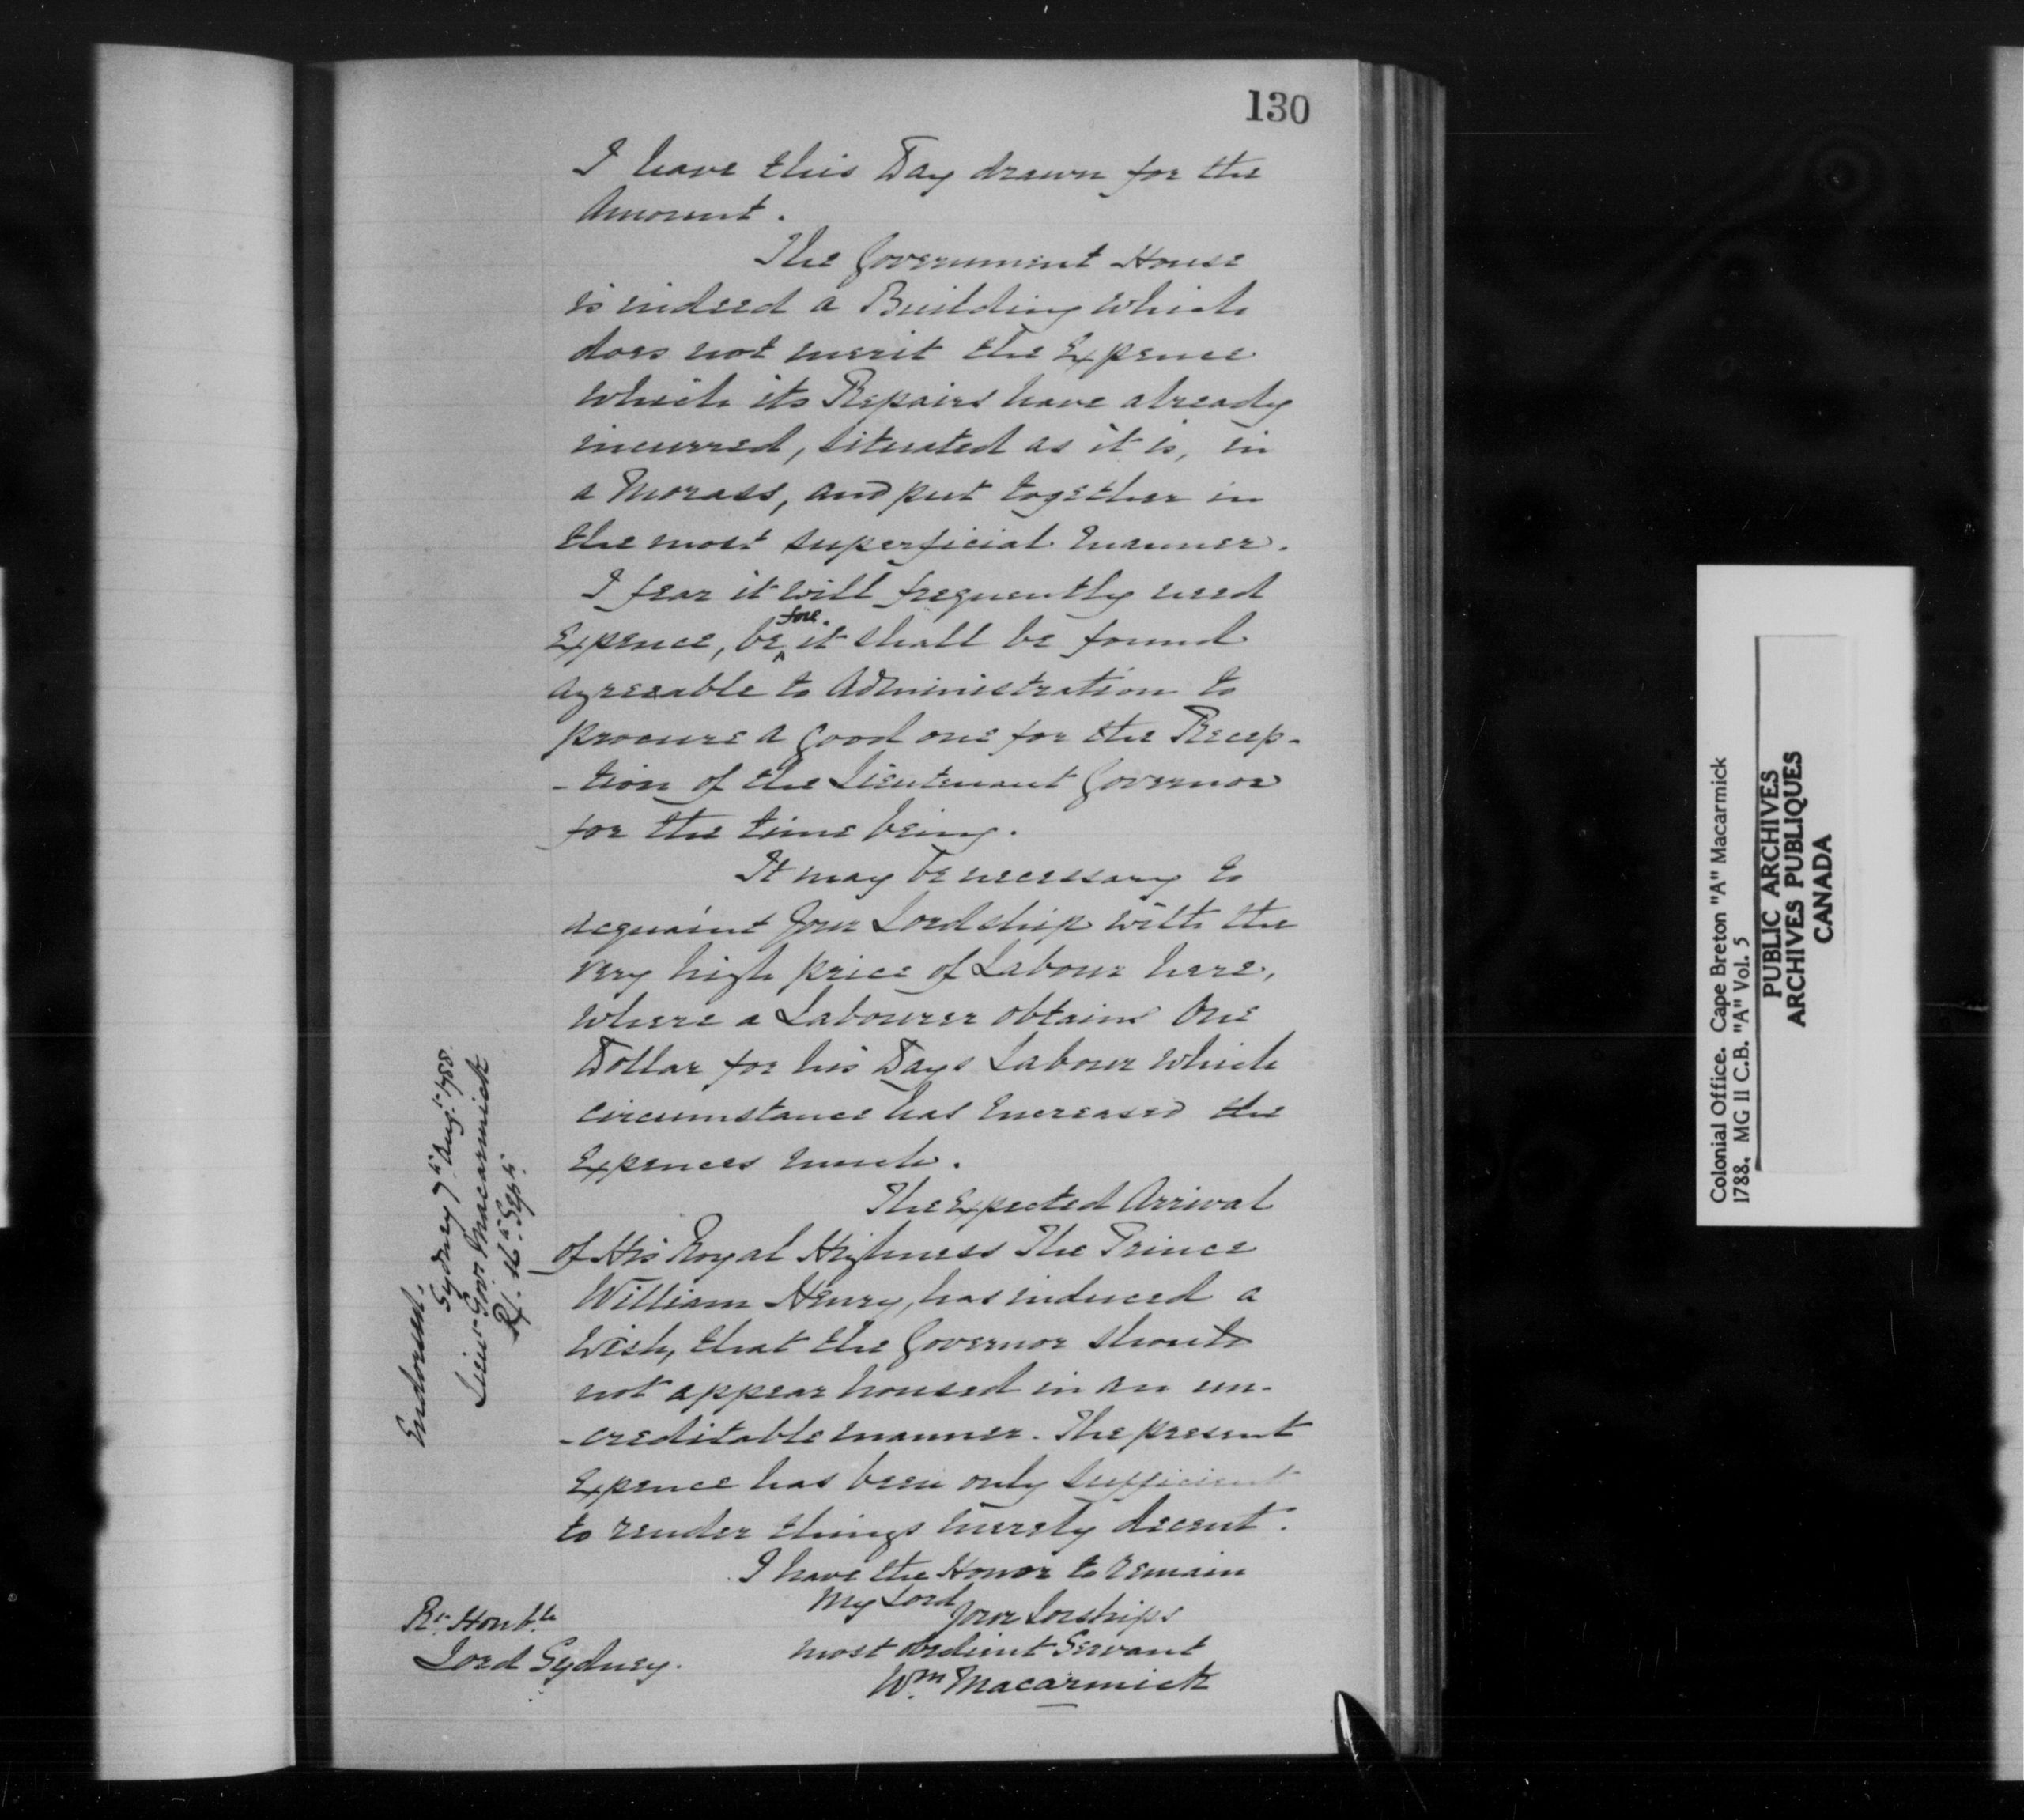 130
I have this Day drawn for the
Amount.
The Government House
is indeed a Building which
does not merit the Expence
which its Repairs have already
incurred, situated as it is, in
a Morass, and put together in
the most superficial Manner.
I fear it will frequently need
Expence, before it shall be found
agreeable to Administration to
procure a Good one for the Recep-
-tion of the Lieutenant Governor
for the time being.
It may be necessary to
acquaint Your Lordship with the
very high price of Labour here,
where a Labourer obtains One
Dollar for his Days Labour which
circumstance has Encreased the
Expences much.
The Expected Arrival
of His Royal Highness The Prince
William Henry, has induced a
Wish, that the Governor should
not appear housed in an un-
-creditable manner. The present
Expence has been only sufficient
to render things merely decent.
I have the Honor to remain
My Lord
Your Lorships
most obedient Servant
Wm Macarmick
Rt. Honble
Lord Sydney.
Endorsed.
Sydney 7th Augt 1788.
Lieut Govr. Macarmick
R/. 16th Sept.
Colonial Office. Cape Breton "A" Macarmick
1788. MG 11 C.B. "A" Vol. 5
PUBLIC ARCHIVES
ARCHIVES PUBLIQUES
CANADA